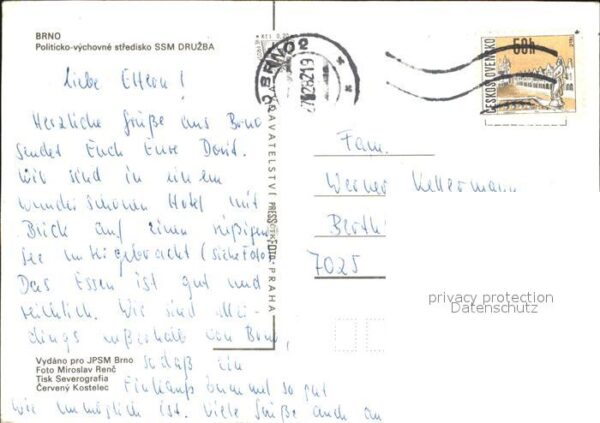 BRNO
Politicko-výchovné středisko SSM DRUŽBA
Liebe Eltern!
Herzliche Grüße aus Brno
sendet Euch Eure Dorit.
Wir sind in einem
wunderschönen Hotel mit
Blick auf einen riesigen
See untergebracht (siehe Foto)
Das Essen ist gut und
reichlich. Wir sind aller-
dings außerhalb von Brno,
sodaß ein
Einkaufsbummel so gut
wie unmöglich ist. Viele Grüße auch an
Vydáno pro JPSM Brno
Foto Miroslav Renč
Tisk Severografia
Červený Kostelec
VYDAVATELSTVÍ PRESSFOTO · PRAHA
BRNO 2
ČESKOSLOVENSKO
50h
Fam.
Werner Kellermann
7025
privacy protection
Datenschutz